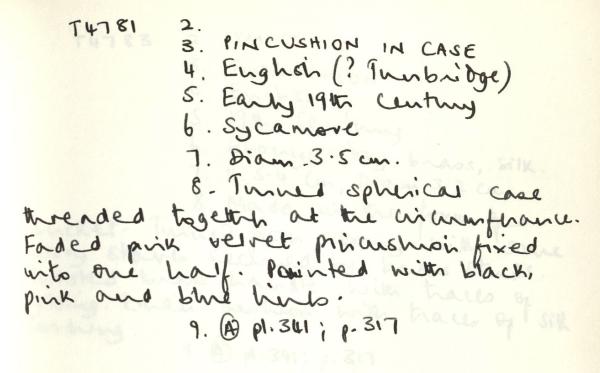 T4781 2.
3. PINCUSHION IN CASE
4. English (? Tunbridge)
5. Early 19th century
6. Sycamore
7. Diam. 3.5 cm.
8. Turned spherical case
threaded together at the circumference.
Faded pink velvet pincushion fixed
into one half. Painted with black,
pink and blue lines.
9. Ⓐ pl.341; p.317